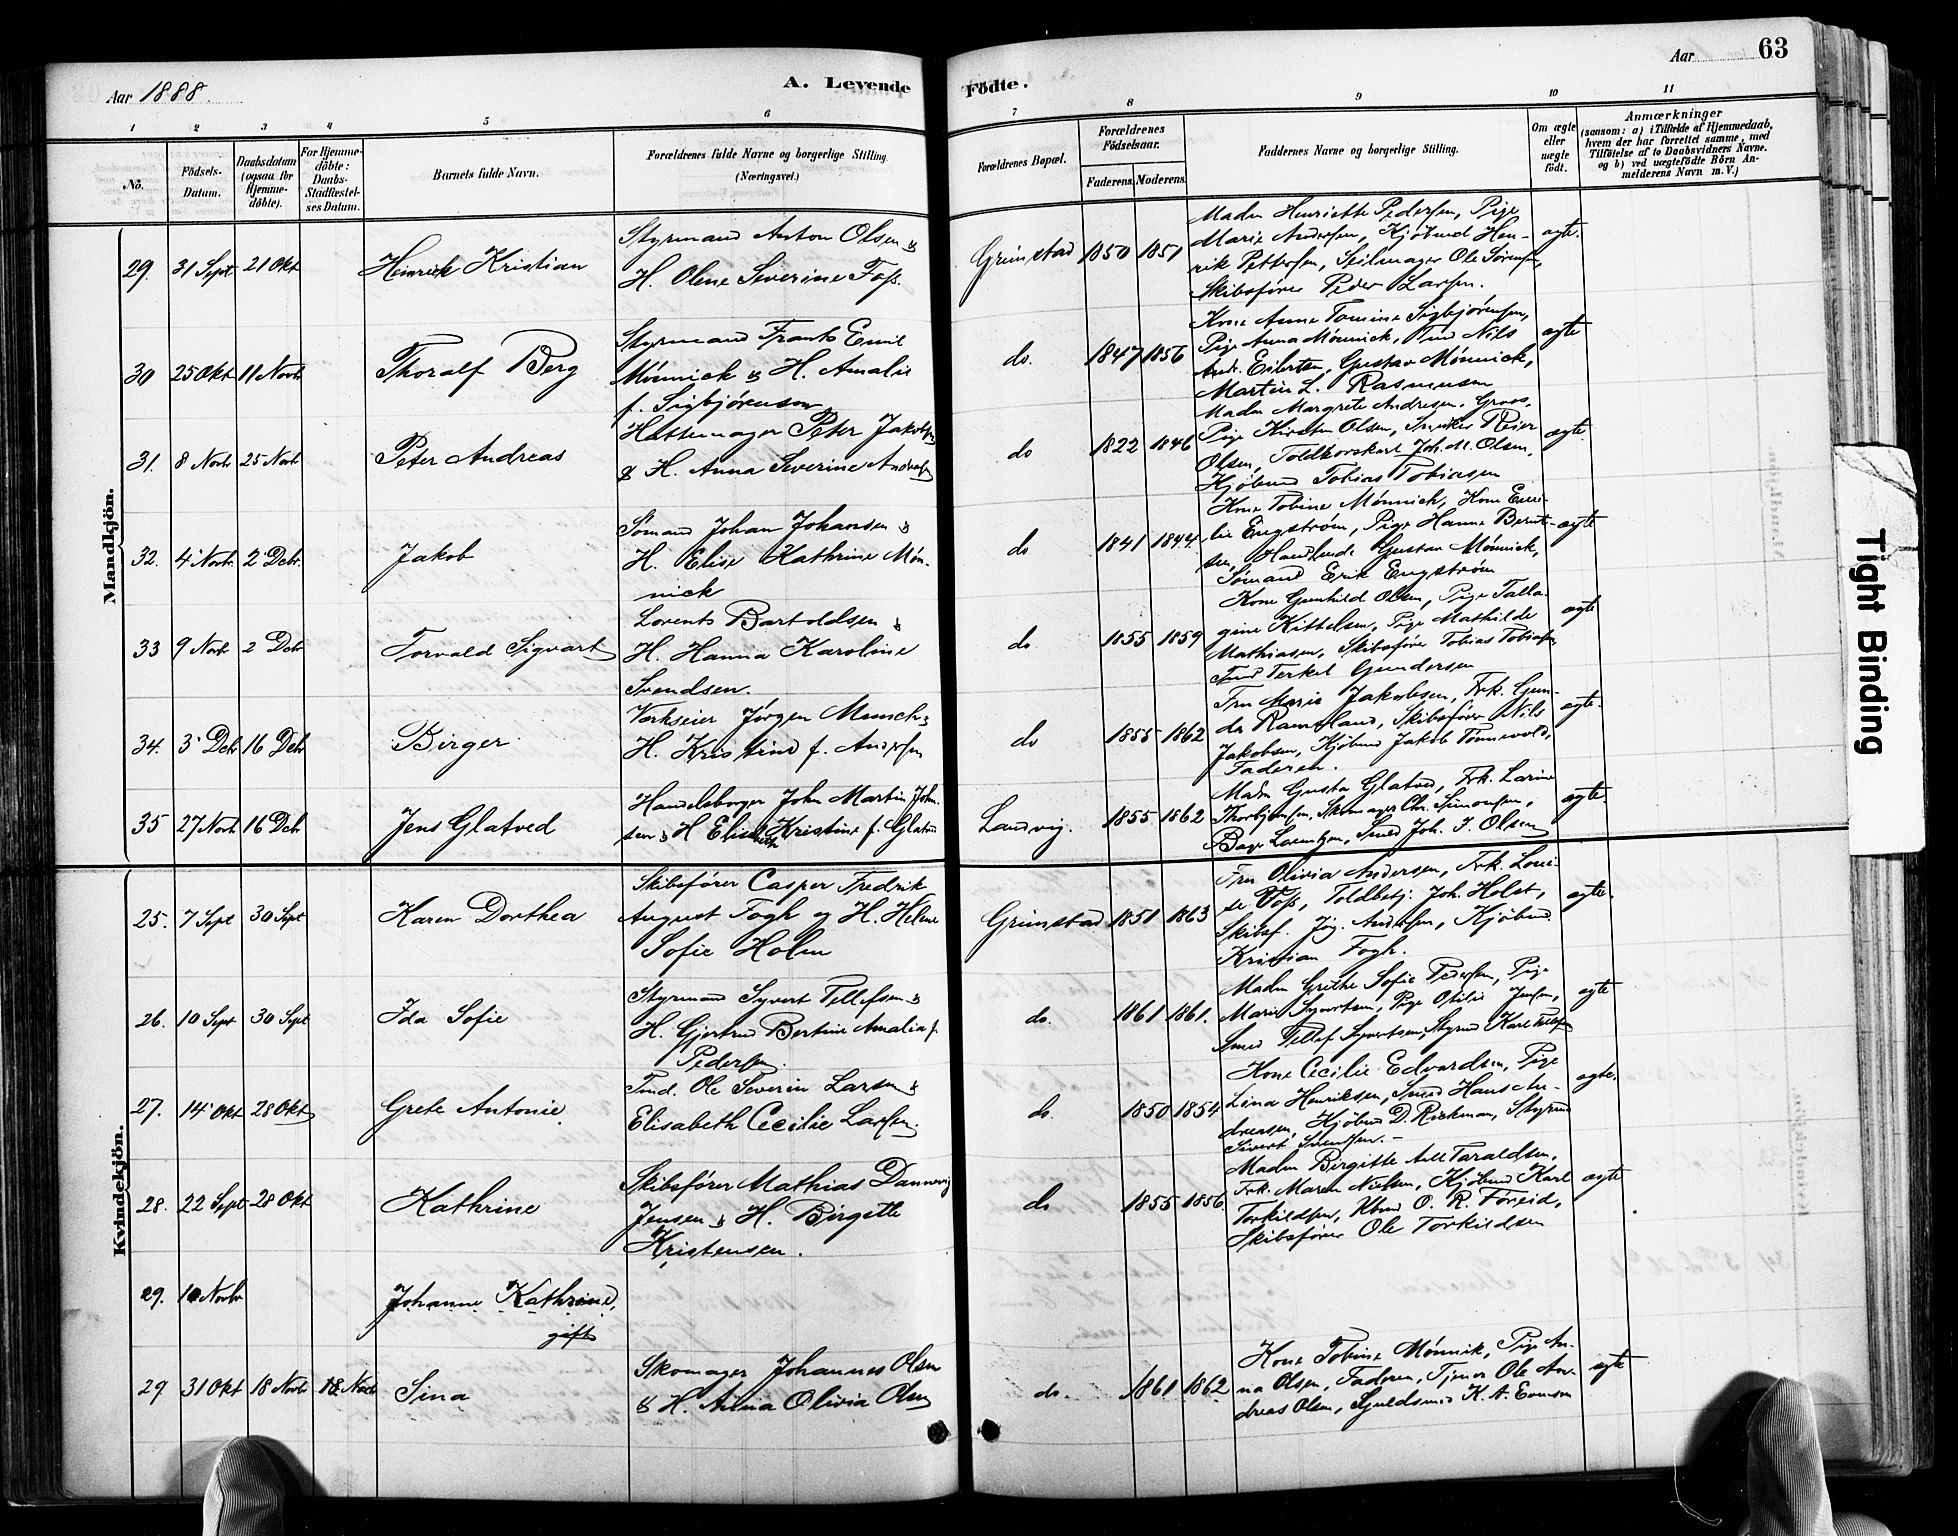 Aar 1888.
A. Levende
1 2 3 4 5 6
No.
Födsels-
Datum.
Daabsdatum
(ogsaa for
Hjemme-
døbte).
For Hjemme-
döbte:
Daabs-
Stadfæstel-
ses Datum.
Barnets fulde Navn.
Forældrenes fulde Navne og borgerlige Stilling
(Næringsvei.)
Mandkjön.
29. 31 Sept 21 Okt Henrick Kristian
Styrmand Anton Olsen &
H. Olene Severine Foss.
30 25 Okt 11 Novbr Thoralf Berg
Styrmand Frants Emil
Mönnick & H. Amalie
f. Sigbjørnsen
31. 8 Novbr 25 Novbr Peter Andreas
Hattemager Peter Jakobsen
& H. Anna Severine Andersen
32. 4 Novbr. 2 Debr. Jakob
Sømand Johan Johansen &
H. Elise Kathrine Møn-
nick
33 9 Novbr 2 Debr Torvald Sigvart
Lorents Bartoldsen &
H. Hanna Karoline
Svendsen.
34. 3 Debr 16 Debr Birger.
Værkseier Jörgen Munch &
H. Kristine f. Andersen
35 27 Novbr 16 Debr Jens Glatved
Handelsborger John Martin John-
sen & H Elisabeth Kristine f. Glatved
Kvindekjön.
25. 7 Sept 30 Sept Karen Dorthea
Skibsfører Casper Fredrik
August Fogh og H. Helene
Sofie Holm
26. 10 Sept 30 Sept Ida Sofie
Styrmand Syvert Tellefsen &
H. Gjertrud Bertine Amalia f.
Pedersen.
27. 14 Okt 28 Okt Grete Antonie
Tmd. Ole Severin Larsen &
Elisabeth Cecilie Larsen.
28. 22 Sept 28 Okt Kathrine
Skibsfører Mathias Dannevig
Jensen & H. Birgitte
Kristensen.
29. 10 Novbr Johanne Kathrine,
gift
29 31 Okt 18 Novbr 18 Novbr Sina
Skomager Johannes Olsen
& H. Anna Olivia Olsen
Födte.
Aar 63
7 8 9 10 11
Forældrenes Bopæl.
Forældrenes
Födselsaar.
Faderens. Moderens.
Faddernes Navne og borgerlige Stilling.
Om ægte
eller
uægte
födt.
Anmærkninger
(saasom: a) i Tilfælde af Hjemmedaab,
hvem der har forrettet samme, med
Tilföielse af to Daabsvidners Navne.
og b) ved uægtefödte Börn An-
melderens Navn m. V.)
Grimstad 1850 1851 ægte.
Madm Henriette Pedersen, Pige
Marie Andersen, Kjøbmd Hen-
rik Pettersen, Seilmager Ole Sørensen,
Skibsfører Peder Larsen.
do. 1847 1856 ægte
Kone Anne Tomine Sigbjørnsen,
Pige Anna Mønnick, Tmd Nils
Andr. Eilertsen, Gustav Mönnick,
Martin L. Rasmussen
do 1822 1846 ægte
Madm Margrete Andresen. Groos,
Pige Kirsten Olsen, Snedker Reier
Olsen, Toldkorskarl Joh. M. Olsen,
Kjøbmd Tobias Tobiasen
do 1841 1844 ægte
Kone Tobine Mønnick, Kone Emi-
lie Engstrøm, Pige Hanne Bernt-
sen, Handlende Gustav Mønnick,
Sømand Erik Engstrøm
do. 1855 1859 ægte
Kone Gunhild Olsen, Pige Talla-
gine Kittelsen, Pige Mathilde
Mathiasen, Skibsfører Tobias Tobiasen,
Tmd Terkel Gundersen
do 1855 1862 ægte.
Fru Marie Jakobsen, Frk. Gun-
da Ramsland, Skibsfører Nils
Jakobsen, Kjøbmd Jakob Tönnevold,
Faderen.
Landvig. 1855 1862 ægte.
Madm Gusta Glatved, Frk. Larine
Thorbjørnsen, Skomager Chr. Simonsen,
Bager Lorentzen, Smed Joh. J. Olsen
Grimstad 1851 1863 ægte.
Fru Olivia Andersen, Frk. Loui-
se Voss, Toldbetj. Joh. Holst,
Skibsf. Jög. Andersen, Kjøbmd
Kristian Fogh.
do. 1861 1861. ægte
Madm Grethe Sofie Pedersen, Pige
Marie Syvertsen, Pige Otilie Jensen,
Smed Tellef Syvertsen, Styrmd Karl Tellefsen
do. 1850 1854 ægte.
Kone Cecilie Edvardsen, Pige
Lina Henriksen, Smed Hans An-
dreasen, Kjøbmd D. Rickman, Styrmd
Sivert Svendsen.-
do 1855 1856. ægte
Madm Birgitte Taraldsen,
Frk. Maren Nielsen, Kjøbmd Karl
Torkildsen, Kbmd O. R. Föreid,
Skibsfører Ole Torkildsen
do. 1861 1862 ægte
Kone Tobine Mönnik, Pige An-
na Olsen, Faderen, Tjener Ole An-
dreas Olsen, Gjuldsmed K. A. Evensen
Tight Binding